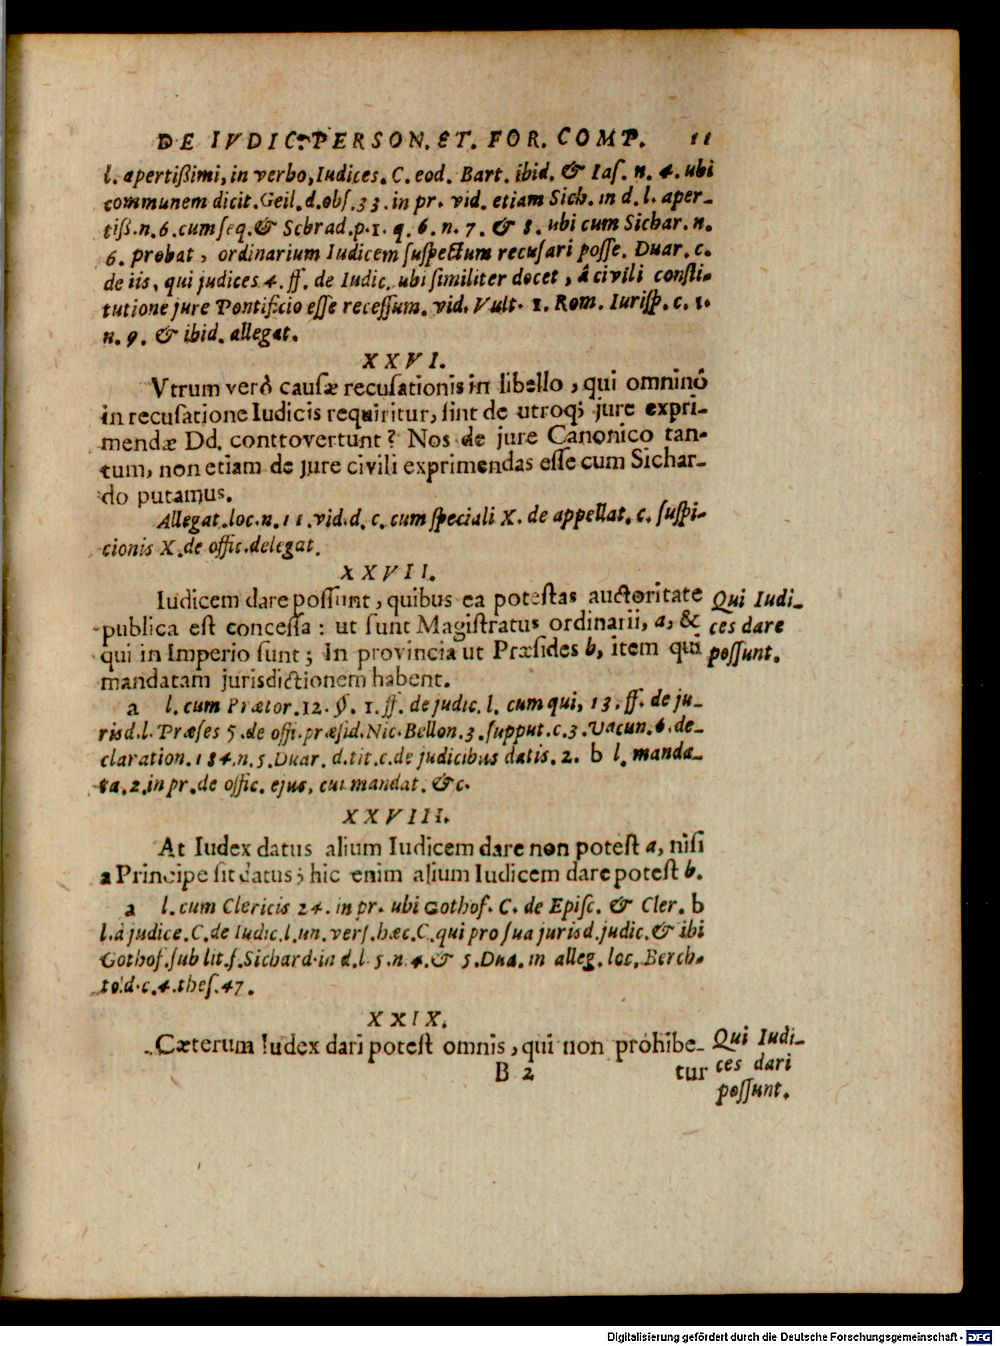 DE IVDIC. PERSON. ET. FOR. COMP. 11
l. apertißimi, in verbo, Iudices. C. eod. Bart. ibid. & Iaſ. n. 4. ubi
communem dicit. Geil. d. obſ. 33. in pr. vid. etiam Sich. in d. l. aper-
tiß. n. 6. cum ſeq. & Schrad. p. 1. q. 6. n. 7. & 8. ubi cum Sichar. n.
6. probat, ordinarium Iudicem ſuſpectum recuſari poſſe. Duar. c.
de iis, qui judices 4. ff. de Iudic. ubi ſimiliter docet, á civili conſti-
tutione jure Pontificio eſſe receſſum. vid. Vult. 1. Rom. Iuriſp. c. 1.
n. 9. & ibid. allegat.
XXVI.
Vtrum verò cauſæ recuſationis in libello, qui omninó
in recuſatione Iudicis requiritur, ſint de utroq; jure expri-
mendæ Dd. conttovertunt? Nos de jure Canonico tan-
tum, non etiam de jure civili exprimendas eſſe cum Sichar-
do putamus.
Allegat. loc. n. 11. vid. d. c. cum ſpeciali X. de appellat. c. ſuſpi-
cionis X. de offic. delegat.
XXVII.
Iudicem dare poſſunt, quibus ea poteſtas auctoritate
publica eſt conceſſa: ut ſunt Magiſtratus ordinarii, a, &
qui in Imperio ſunt; In provincia ut Præſides b, item qui
mandatam jurisdictionem habent.
Qui Iudi-
ces dare
poſſunt.
a l. cum Prætor. 12. §. 1. ff. de judic. l. cum qui, 13. ff. de ju-
risd. l. Præſes 5. de offi. præſid. Nic. Bellon. 3. ſupput. c. 3. Vacun. 6. de-
claration. 184. n. 5. Duar. d. tit. c. de judicibus datis. 2. b l. manda-
ta, 2. in pr. de offic. ejus, cui mandat. &c.
XXVIII.
At Iudex datus alium Iudicem dare non poteſt a, niſi
a Principe ſit datus; hic enim alium Iudicem dare poteſt b.
a l. cum Clericis 24. in pr. ubi Gothof. C. de Epiſc. & Cler. b
l. à judice. C. de Iudic. l. un. verſ. hæc. C. qui pro ſua jurisd. judic. & ibi
Gothof. ſub lit. ſ. Sichard. in d. l. 5. n. 4. & 5. Dua. in alleg. loc. Berch-
told. c. 4. theſ. 47.
XXIX.
Cæterum Iudex dari poteſt omnis, qui non prohibe-
Qui Iudi-
ces dari
poſſunt.
B 2 tur
Digitalisierung gefördert durch die Deutsche Forschungsgemeinschaft - DFG